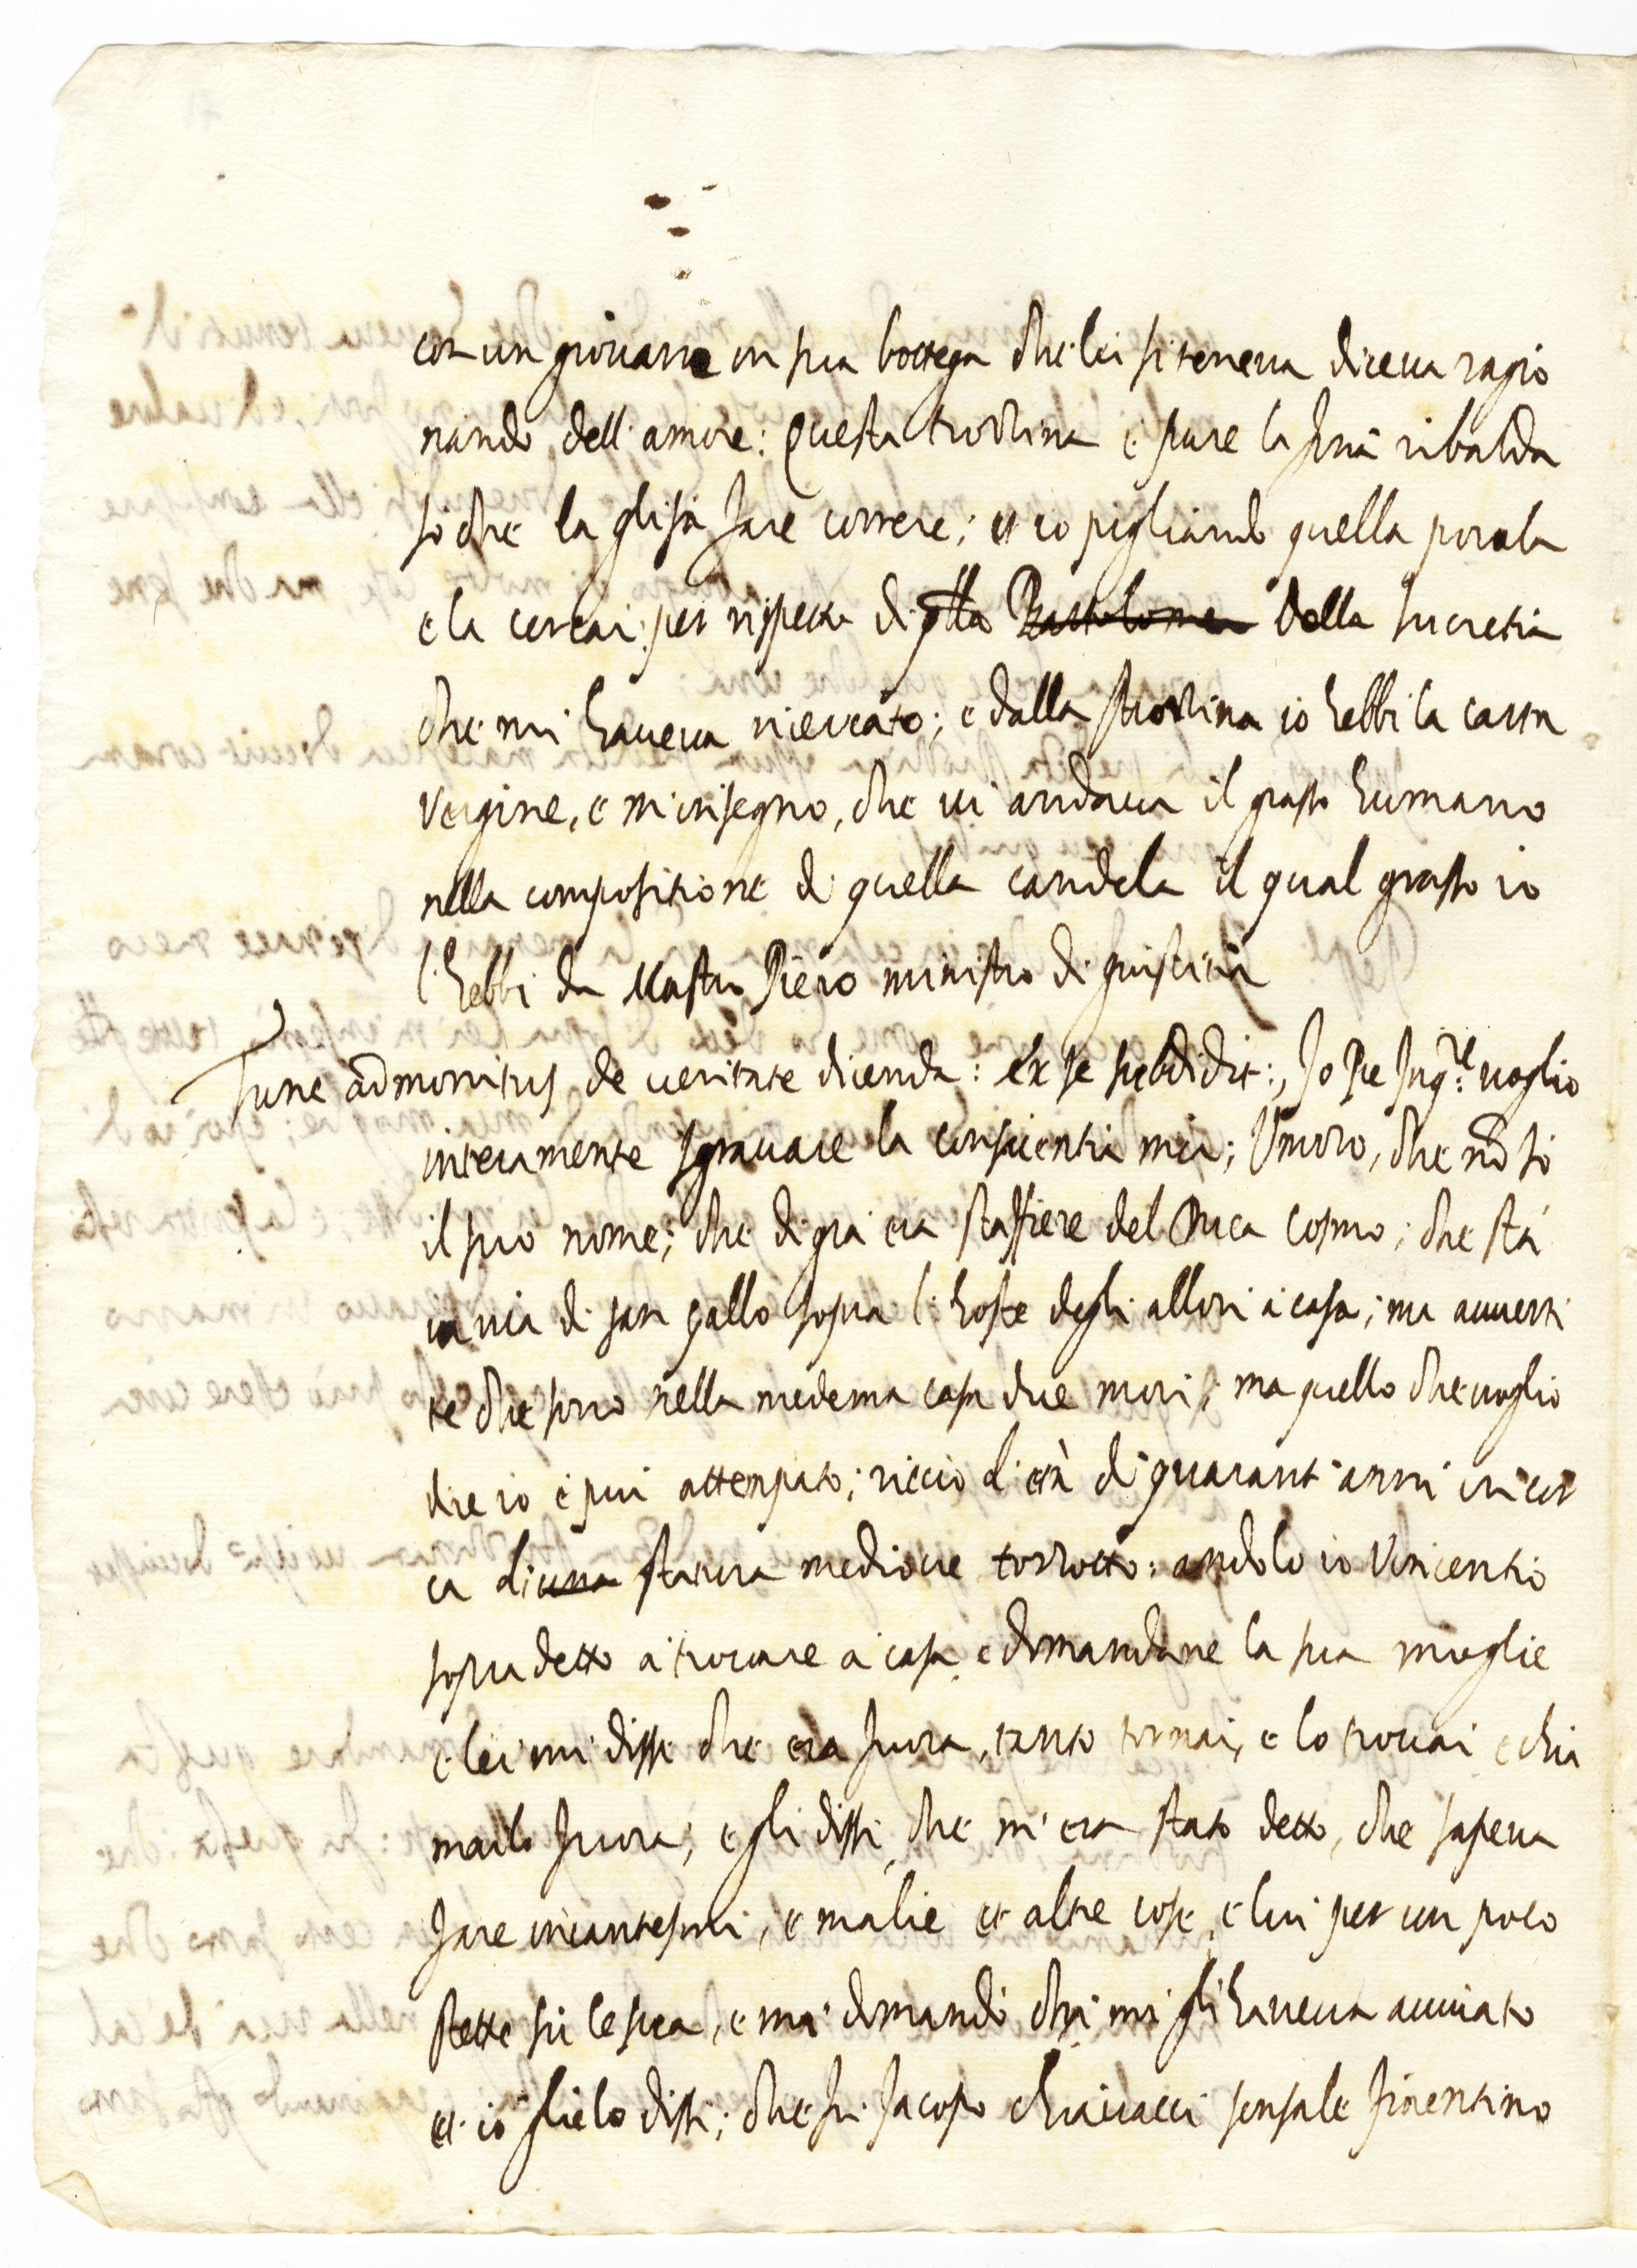 con un giovane in sua bottega che lui si teneva diceva ragio
nando dell'amore: Questa è pure la ribalda
so che la gli fa fare correre; et io pigliando quella parola
e la cercai, per rispetto di qlla Bartolomea della Lucretia
che mi haveva ricercato; e dalla io hebbi la carta
vergine, e m'insegnò, che vi andava il grasso humano
nella compositione di quella candela il qual grasso io
l'hebbi da Mastro Piero ministro di giustitia
Tunc admonitus de veritate dicenda: ex se subdidit:, Io Pre Inqre voglio
interamente sgravare la conscientia mia; Un moro, che nō so
il suo nome; che di già era staffiere del Duca Cosmo; che sta
in via di san gallo sopra l'hoste degli allori a casa; ma averti
te che sono nella medema casa due mori; ma quello che voglio
dire io è più attempato; riccio d'età di quarant'anni in cir
ca di una statura mediocre torzotto: andolo io Vincentio
sopradetto a trovare a casa, e domandone la sua moglie
e lei mi disse che era fuora, tanto tornai, e lo trovai e chia
mailo fuora; e gli dissi, che m'era stato detto, che sapeva
fare incantesmi, e malie et altre cose, e lui per un poco
stette su le sua, e mi domandò chi mi gli haveva aviato
et io glielo dissi; che fu Jacopo sensale fiorentino